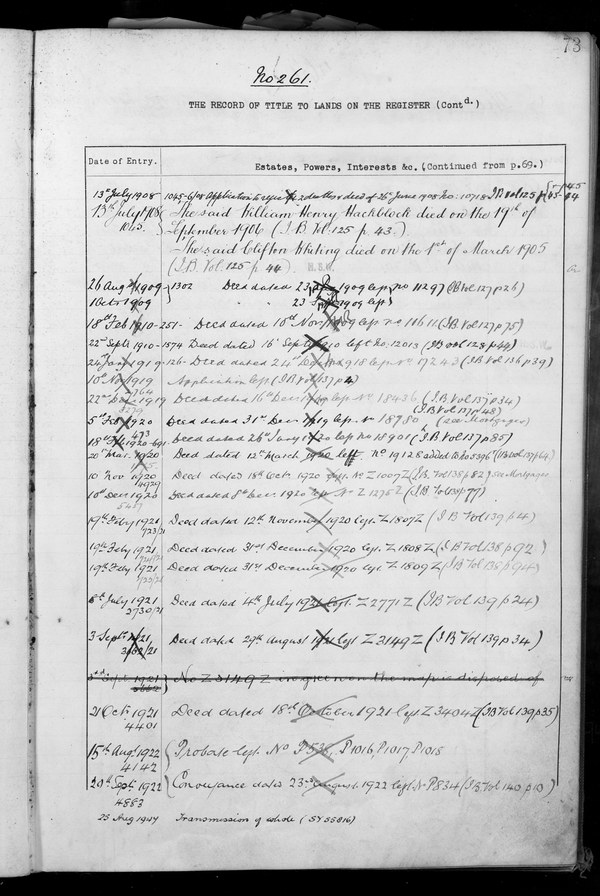 73
No 261.
THE RECORD OF TITLE TO LANDS ON THE REGISTER (Contd.)
Date of Entry.
Estates, Powers, Interests &c. (Continued from p.69.)
13th July 1908 1045-6/08 Application to 2 deaths & deed of 26th June 1908 No: 10718 I.B. Vol 125 p 45
13th July 1908 The said William Henry Hackblock died on the 19th of
1045. September 1906 (I.B. Vol: 125 p. 43.)
The said Clifton Whiting died on the 1st of March 1905
(I.B. Vol: 125 p. 44)
26 Aug 1909 1302 Deed dated 23 1909 left no 11297 (IB Vol 127 p 26)
1 Octr 1909 " 23 1909 left
18th Feb 1910 - 251 - Deed dated 10th Novr 1909 left no 11611 (I.B Vol 127 p 75)
22nd Septr 1910 - 1574 Deed dated 16th Septr 1910 left No: 12013 (IB Vol 128 p 34)
24th Jany 1919 - 126 - Deed dated 24th Decr 1918 left No 17243 (IB Vol 136 p 39)
10th Nov 1919 Application left (I B Vol 137 p 4)
2764
22nd Decr 1919 Deed dated 16th Decr 1919 left No 18436 (I.B Vol 137 p 34)
3279 (I.B Vol 137 p 48)
5th Feb 1920 Deed dated 31st Decr 1919 left No 18780 (see Mortgages)
473
18th 1920 - 691 Deed dated 26th Jany 1920 left No 18901 (I.B Vol 137 p 85)
20th Mar. 1920 Deed dated 12th March 1920 left No 19128 added to 5396 (IB Vol 137 p 64)
10 Nov 1920 Deed dated 18th Octr 1920 left No Z1007Z (I.B Vol 138 p 82) see Mortgages
4929
10th Decr 1920 Deed dated 8th Decr 1920 left No Z1275Z (I.B Vol 138 p 77)
19th Feby 1921 Deed dated 12th November 1920 left Z1807Z (I B Vol 139 p 4)
19th Feby 1921 Deed dated 31st December 1920 left Z1808Z (I B Vol 138 p 92)
19th Feby 1921 Deed dated 31st December 1920 left Z1809Z (I B Vol 138 p 94)
8th July 1921 Deed dated 4th July 1921 left Z2771Z (I.B Vol 139 p 24)
2730/21
3 Septr 1921 Deed dated 29th August 1921 left Z3149Z (I B Vol 139 p 34)
3662/21
3rd Septr 1921 No Z3149Z in green on the map is disposed of
3662
21 Octr 1921 Deed dated 18th October 1921 left Z3404Z (I B Vol 139 p 35)
4401
15th Augt 1922 Probate left No P536, P1016, P1017, P1018
4142
20th Septr 1922 Conveyance dated 23rd August 1922 left No P834 (I B Vol 140 p 10)
4883
25 Aug 1947 Transmission of whole (SY 55016)